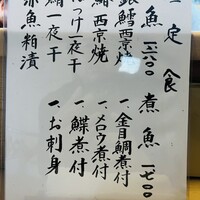 定食
煮魚 一七〇〇
一、金目鯛煮付
一、メロウ煮付
一、鰈煮付
一、お刺身
魚 一六八〇
銀鱈西京焼
西京焼
つけ一夜干
一夜干
赤魚粕漬